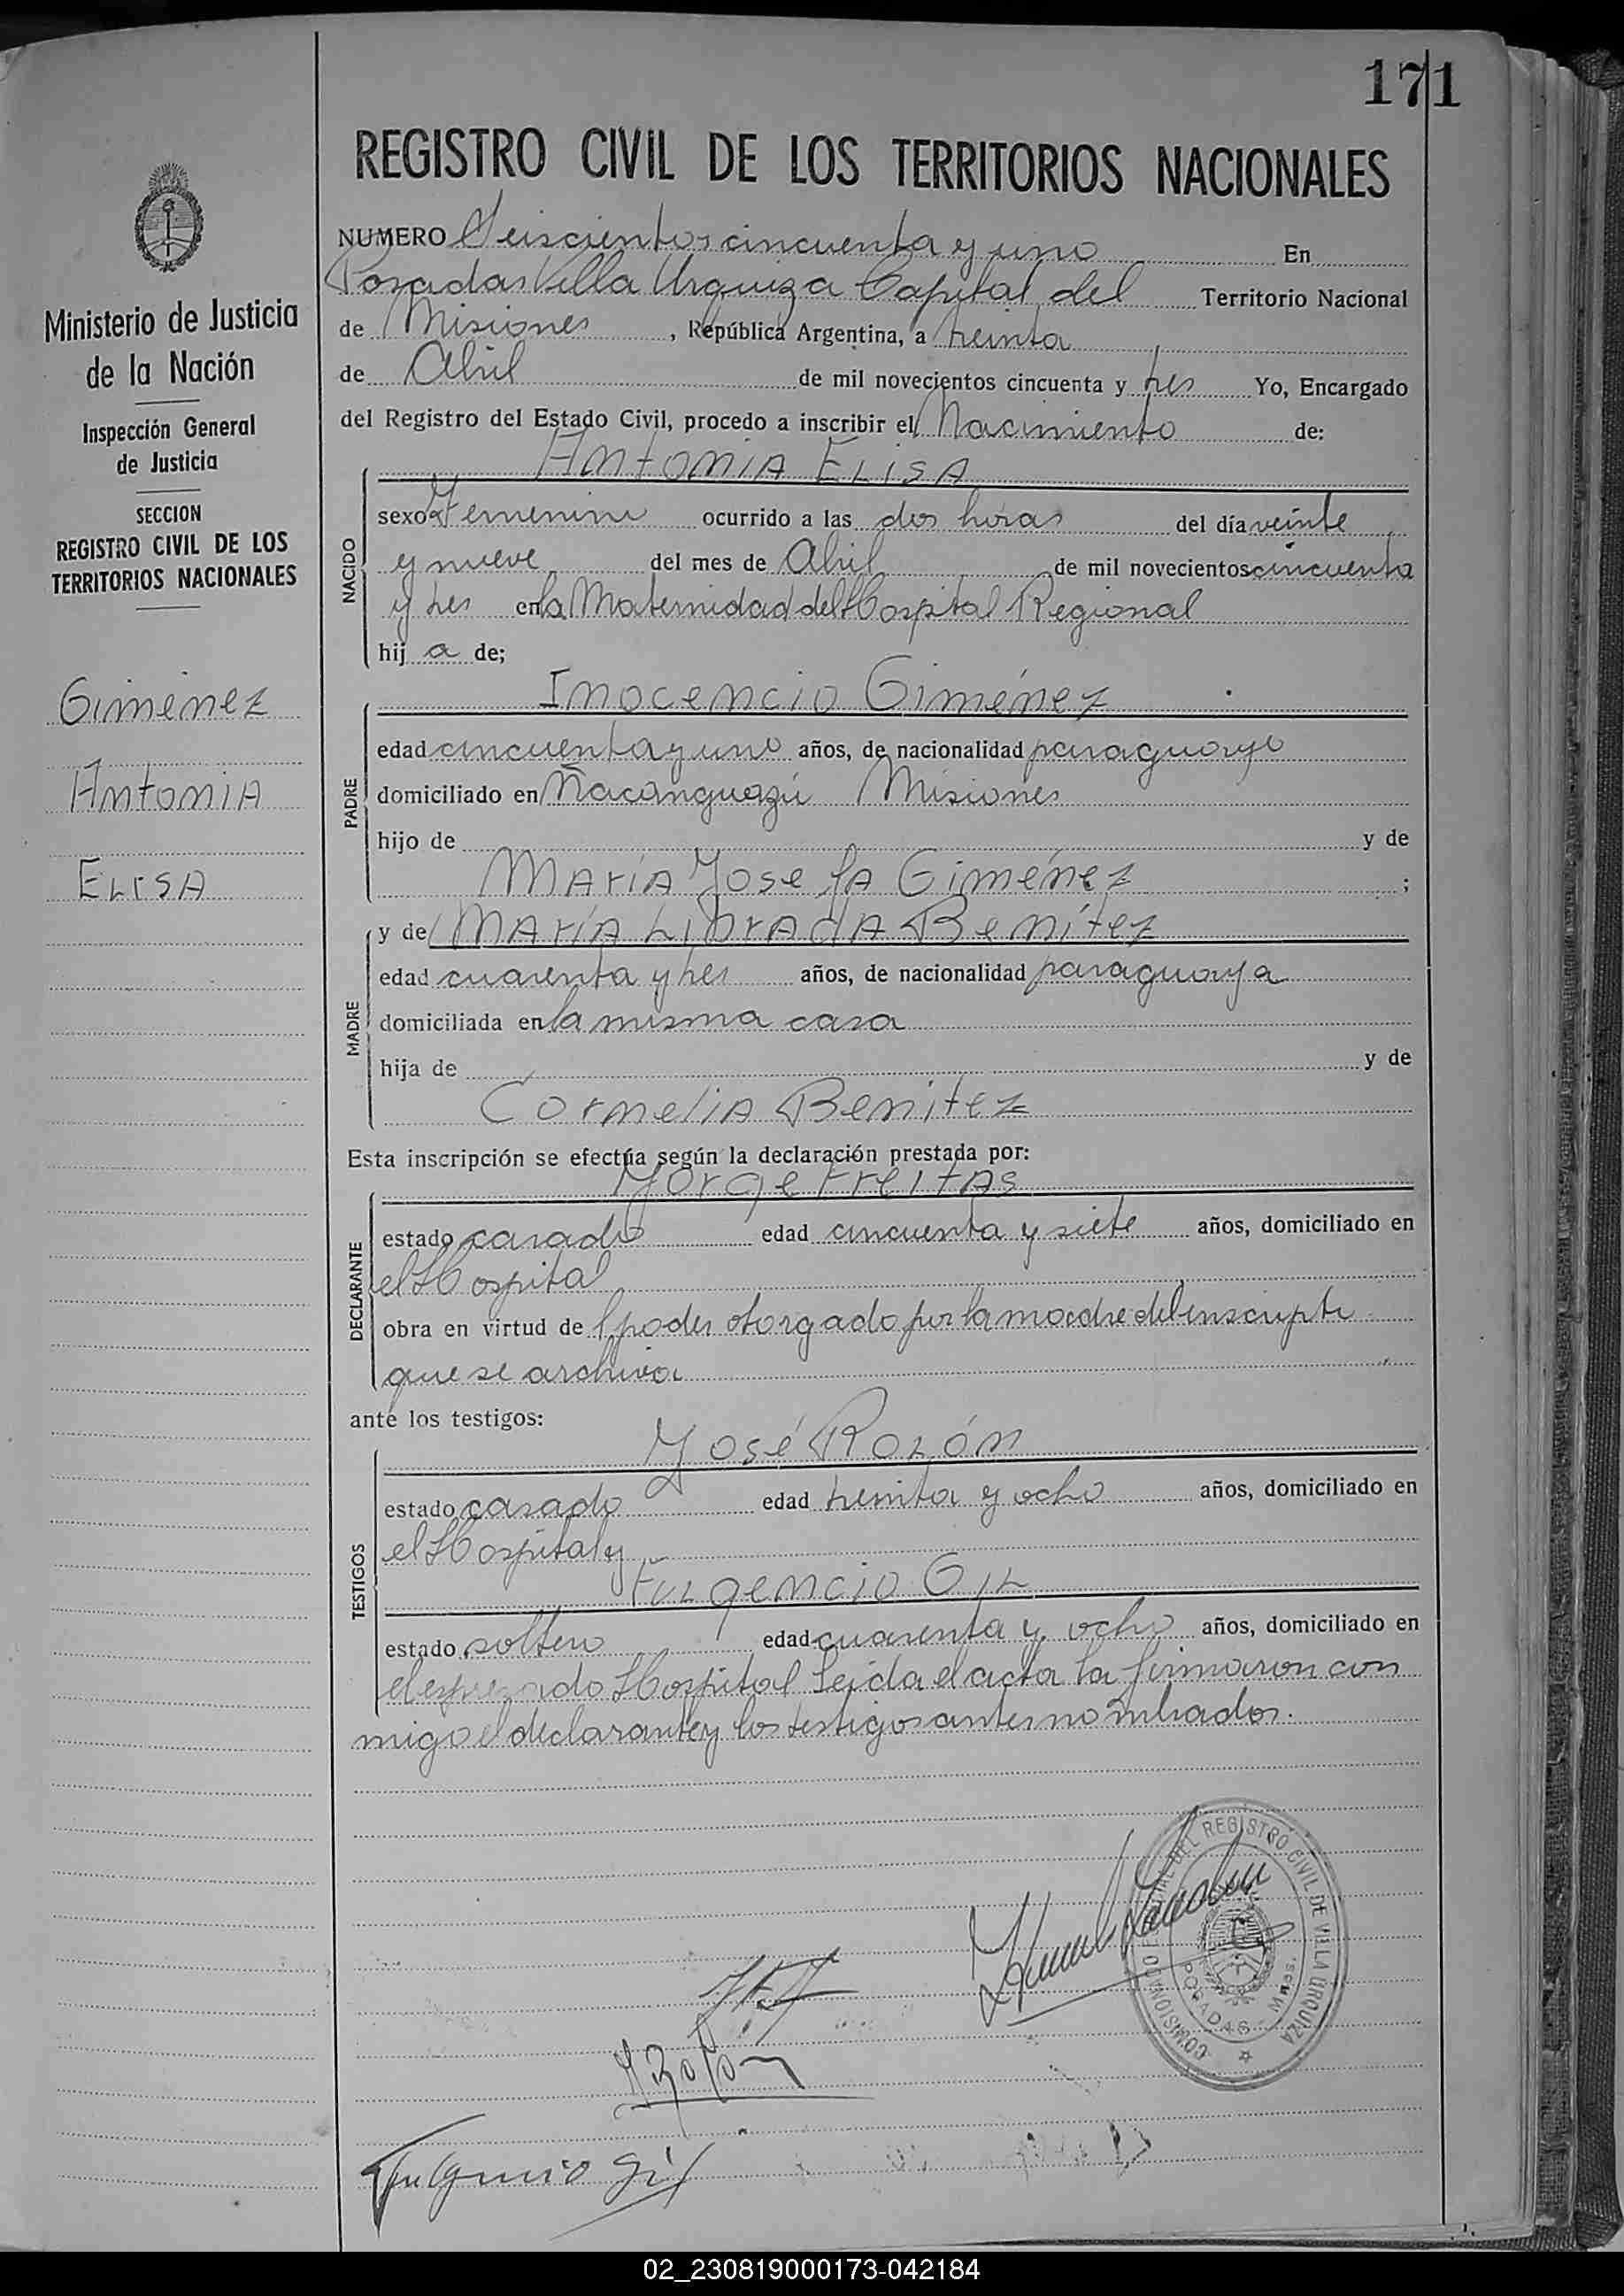 171
REGISTRO CIVIL DE LOS TERRITORIOS NACIONALES
Ministerio de Justicia
de la Nación
Inspección General
de Justicia
SECCION
REGISTRO CIVIL DE LOS
TERRITORIOS NACIONALES
Giménez
Antonia
Elisa
NUMERO Seiscientos cincuenta y uno En
Posadas Villa Urquiza Capital del Territorio Nacional
de Misiones, República Argentina, a treinta
de Abril de mil novecientos cincuenta y tres Yo, Encargado
del Registro del Estado Civil, procedo a inscribir el Nacimiento de:
Antonia Elisa
NACIDO
sexo Femenino ocurrido a las dos horas del día veinte
y nueve del mes de Abril de mil novecientos cincuenta
y tres en la Maternidad del Hospital Regional
hij a de;
Inocencio Giménez
PADRE
edad cincuenta y uno años, de nacionalidad paraguayo
domiciliado en Ñacanguazú Misiones
hijo de y de
María Josefa Giménez ;
y de María Librada Benítez
MADRE
edad cuarenta y tres años, de nacionalidad paraguaya
domiciliada en la misma casa
hija de y de
Cornelia Benitez
Esta inscripción se efectúa según la declaración prestada por:
Jorge Freitas
DECLARANTE
estado casado edad cincuenta y siete años, domiciliado en
el Hospital
obra en virtud de l poder otorgado por la madre del inscripto
que se archiva
ante los testigos:
José Rolón
TESTIGOS
estado casado edad treinta y ocho años, domiciliado en
el Hospital y
Fulgencio Gil
estado soltero edad cuarenta y ocho años, domiciliado en
el espresado Hospital Leida el acta la firmaron con
migo el declarante y los testigos antes nombrados.
COMISIONADO OFICIAL DEL REGISTRO CIVIL DE VILLA URQUIZA
POSADAS - Mnes.
J Rolon
Fulgencio Gil
02_230819000173-042184